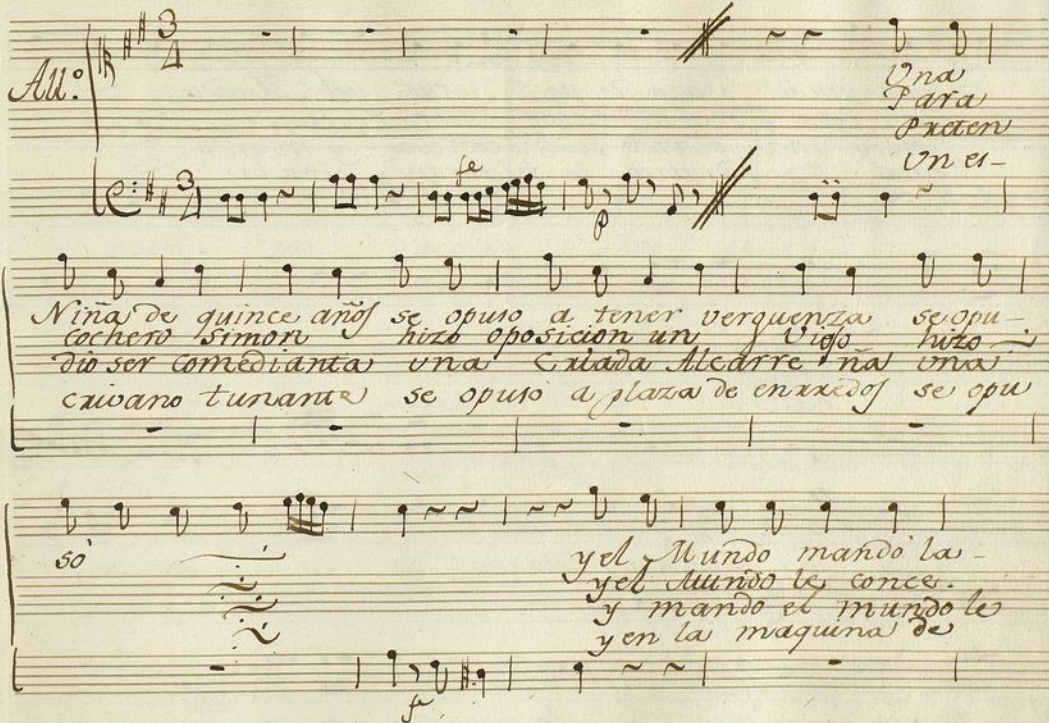 3
4
All.º
Una
Para
Preten
Un es-
3
fe
p
Niña de quince años se opuso a tener verguenza se opu-
cochero simon hizo oposicion un Viejo hizo
dio ser comedianta una Criada Alcarre ña una
crivano tunante se opuso a plaza de enrredos se opu
só y el Mundo mandó la-
y el Mundo le conce.
y mando el mundo le
y en la maquina de
fe